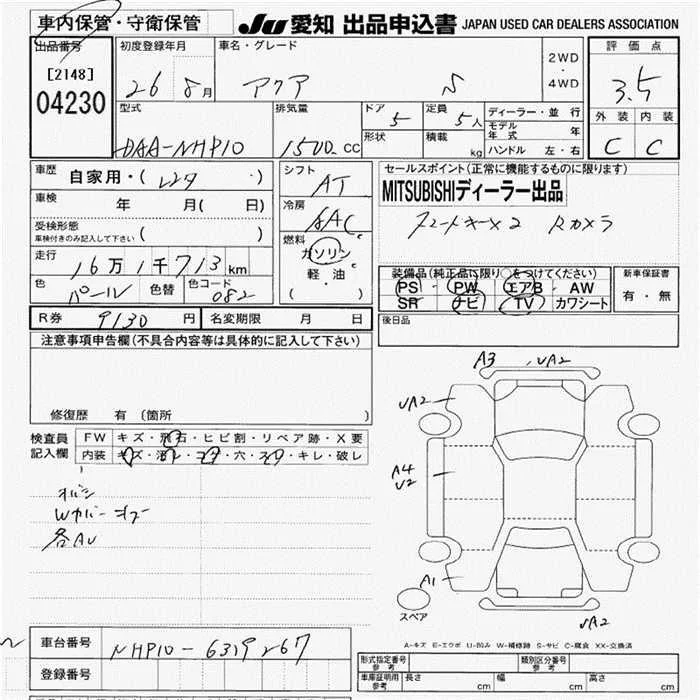 車内保管・守衛保管
JU 愛知 出品申込書 JAPAN USED CAR DEALERS ASSOCIATION
出品番号
[2148]
04230
初度登録年月
26 8月
車名・グレード
アクア S
2WD
・
4WD
評価点
3.5
外装 内装
C C
型式
DAA-NHP10
排気量
1500 CC
ドア
5
定員
5人
形状
積載
kg
ディーラー・並行
モデル年式 年
ハンドル 左・右
車歴
自家用・( レンタ ・)
車検
年 月( 日)
受検形態
車検付きのみ記入して下さい ( )
走行
16万1千713km
色
パール
色替
色コード
082
シフト
AT
冷房
AAC
燃料
ガソリン
軽・油
( )
セールスポイント(正常に機能するものに限ります)
MITSUBISHIディーラー出品
スマートキー×2 Rカメラ
装備品(純正品に限り○をつけてください)
PS・PW・エアB・AW
SR ナビ TV カワシート
新車保証書
有・無
後日品
R券
9130 円
名変期限 月 日
注意事項申告欄(不具合内容等は具体的に記入して下さい)
修復歴 有(箇所 )
検査員
記入欄
FW キズ・飛石・ヒビ割・リペア跡・X要
内装 キズ・汚レ・コゲ・穴・スレ・キレ・破レ
Wカバー
各AU
A3
UA2
UA2
A4
U2
A1
UA2
スペア
A-キズ E-エクボ U-凹み W-補修跡 S-サビ C-腐食 XX-交換済
車台番号
NHP10-6319267
登録番号
形式指定番号
参考
類別区分番号
参考
車庫証明用
参考
長さ cm
幅 cm
高さ cm